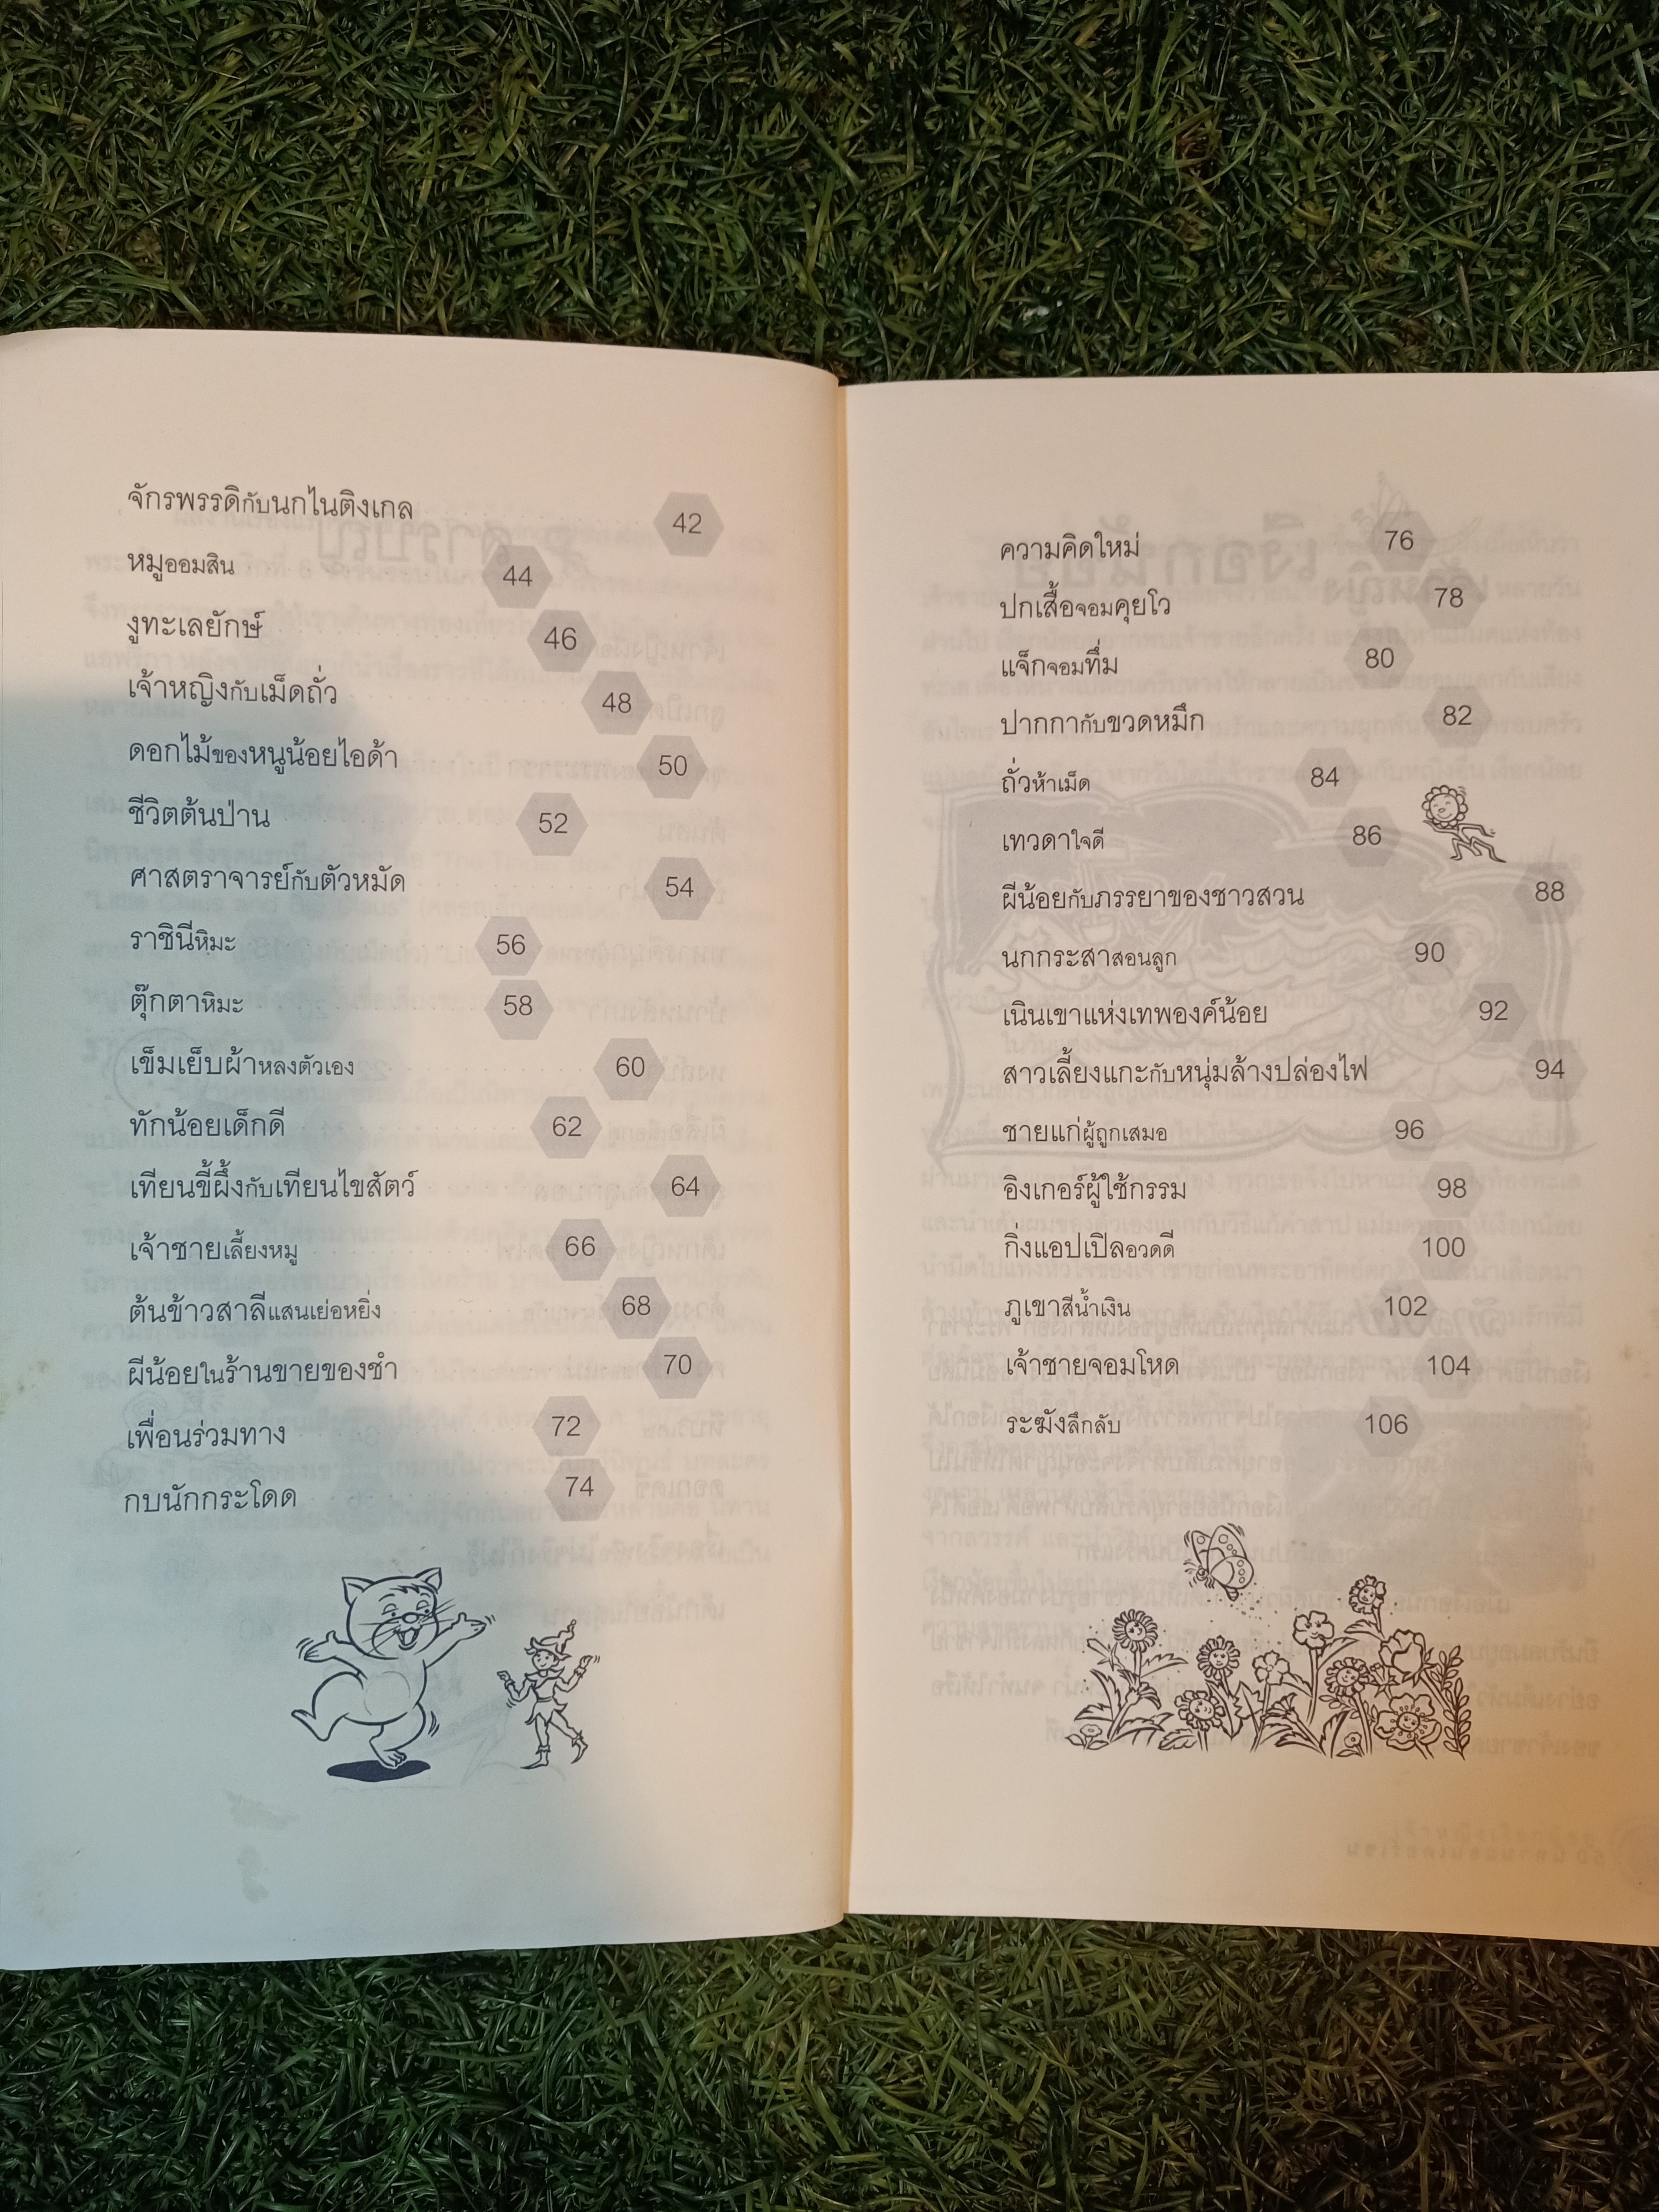 จักรพรรดิกับนกไนติงเกล 42
หมูออมสิน 44
งูทะเลยักษ์ 46
เจ้าหญิงกับเม็ดถั่ว 48
ดอกไม้ของหนูน้อยไอด้า 50
ชีวิตต้นป่าน 52
ศาสตราจารย์กับตัวหมัด 54
ราชินีหิมะ 56
ตุ๊กตาหิมะ 58
เข็มเย็บผ้าหลงตัวเอง 60
ทักน้อยเด็กดี 62
เทียนขี้ผึ้งกับเทียนไขสัตว์ 64
เจ้าชายเลี้ยงหมู 66
ต้นข้าวสาลีแสนเย่อหยิ่ง 68
ผีน้อยในร้านขายของชำ 70
เพื่อนร่วมทาง 72
กบนักกระโดด 74
ความคิดใหม่ 76
ปกเสื้อจอมคุยโว 78
แจ็กจอมทึ่ม 80
ปากกากับขวดหมึก 82
ถั่วห้าเม็ด 84
เทวดาใจดี 86
ผีน้อยกับภรรยาของชาวสวน 88
นกกระสาสอนลูก 90
เนินเขาแห่งเทพองค์น้อย 92
สาวเลี้ยงแกะกับหนุ่มล้างปล่องไฟ 94
ชายแก่ผู้ถูกเสมอ 96
อิงเกอร์ผู้ใช้กรรม 98
กิ่งแอปเปิลอวดดี 100
ภูเขาสีน้ำเงิน 102
เจ้าชายจอมโหด 104
ระฆังลึกลับ 106